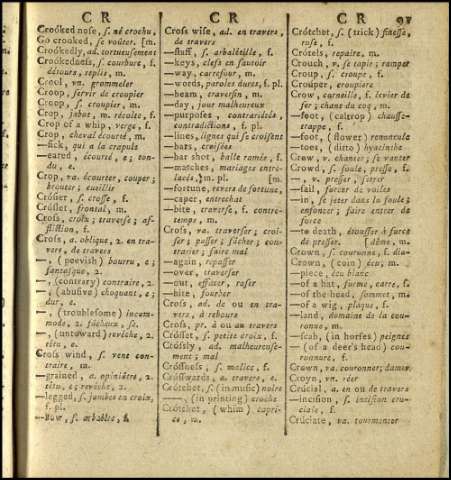 C R
Croóked nose, s. né crochu,
Go crooked, se voûter. [m.
Croókedly, ad. tortueusement
Croókedness, s. courbure, f.
détours, replis, m.
Crool, vn. grommeler
Croop, servir de croupier
Croop, s. croupier, m.
Crop, jabot, m. récolte, f.
Crop of a whip, verge, f.
Crop, cheval écourté, m.
—sick, qui a la crapule
—eared, écourté, e; ton-
du, e.
Crop, va. écourter, couper;
brouter; cueillir
Crósier, s. crosse, f.
Cróslet, frontal, m.
Cross, croix; traverse; af-
fliction, f.
Cross, a. oblique, 2. en tra-
vers, de travers
—, (peevish) bourru, e;
fantasque, 2.
—, (contrary) contraire, 2.
—, (abusive) choquant, e;
dur, e.
—, (troublesome) incom-
mode, 2. fâcheux, se.
—, (untoward) revêche, 2.
têtu, e.
Cross wind, s. vent con-
traire, m.
—grained, a. opiniâtre, 2.
têtu, e; revêche, 2.
—legged, s. jambes en croix,
f. pl.
—Bow, s. arbalète, f.
C R
Cross wise, ad. en travers,
de travers
—staff, s. arbalétille, f.
—keys, clefs en sautoir
—way, carrefour, m.
—words, paroles dures, f. pl.
—beam, traversin, m.
—day, jour malheureux
—purposes, contraridés,
contradictions, f. pl.
—lines, lignes qui se croisent
—bars, croisées
—bar shot, balle ramée, f.
—matches, mariages entre-
lacés, m. pl. [m.
—fortune, revers de fortune,
—caper, entrechat
—bite, traverse, f. contre-
temps, m.
Cross, va. traverser; croi-
ser; passer; fâcher; con-
trarier; faire mal
—again, repasser
—over, traverser
—out, effacer, raser
—bite, fourber
Cross, ad. de ou en tra-
vers, à rebours
Cross, pr. à ou au travers
Cróslet, s. petite croix, f.
Cróssly, ad. malheureuse-
ment; mal
Cróssness, s. malice, f.
Crósswards, a. travers, e.
Crótchet, s. (in music) noire
—, (in printing) croche
Crótchet, (whim) capri-
ce, m.
C R 97
Crótchet, s. (trick) finesse,
ruse, f.
Crótels, repaire, m.
Crouch, v. se tapir; ramper
Croup, s. croupe, f.
Croúper, croupiere
Crow, corneille, f. levier de
fer; chant du coq, m.
—foot, (caltrop) chausse-
trappe, f.
—foot, (flower) renoncule
—toes, (ditto) hyacinthe
Crow, v. chanter; se vanter
Crowd, s. foule, presse, f.
—, v. presser, serrer
—sail, forcer de voiles
—in, se jeter dans la foule;
enfoncer; faire entrer de
force
—to death, étouffer à force
de presser. [dême, m.
Crown, s. couronne, f. dia-
Crown, (coin) écu, m.
—piece, écu blanc
—of a hat, forme, carre, f.
—of the head, sommet, m.
—of a wig, plaque, f.
—land, domaine de la cou-
ronne, m.
—scab, (in horses) peignes
—(of a deer's head) cou-
ronnure, f.
Crown, va. couronner; damer
Croyn, vn. réer
Crucial, a. en ou de travers
—incision, s. incision cru-
ciale, f.
Crúciate, va. tourmenter